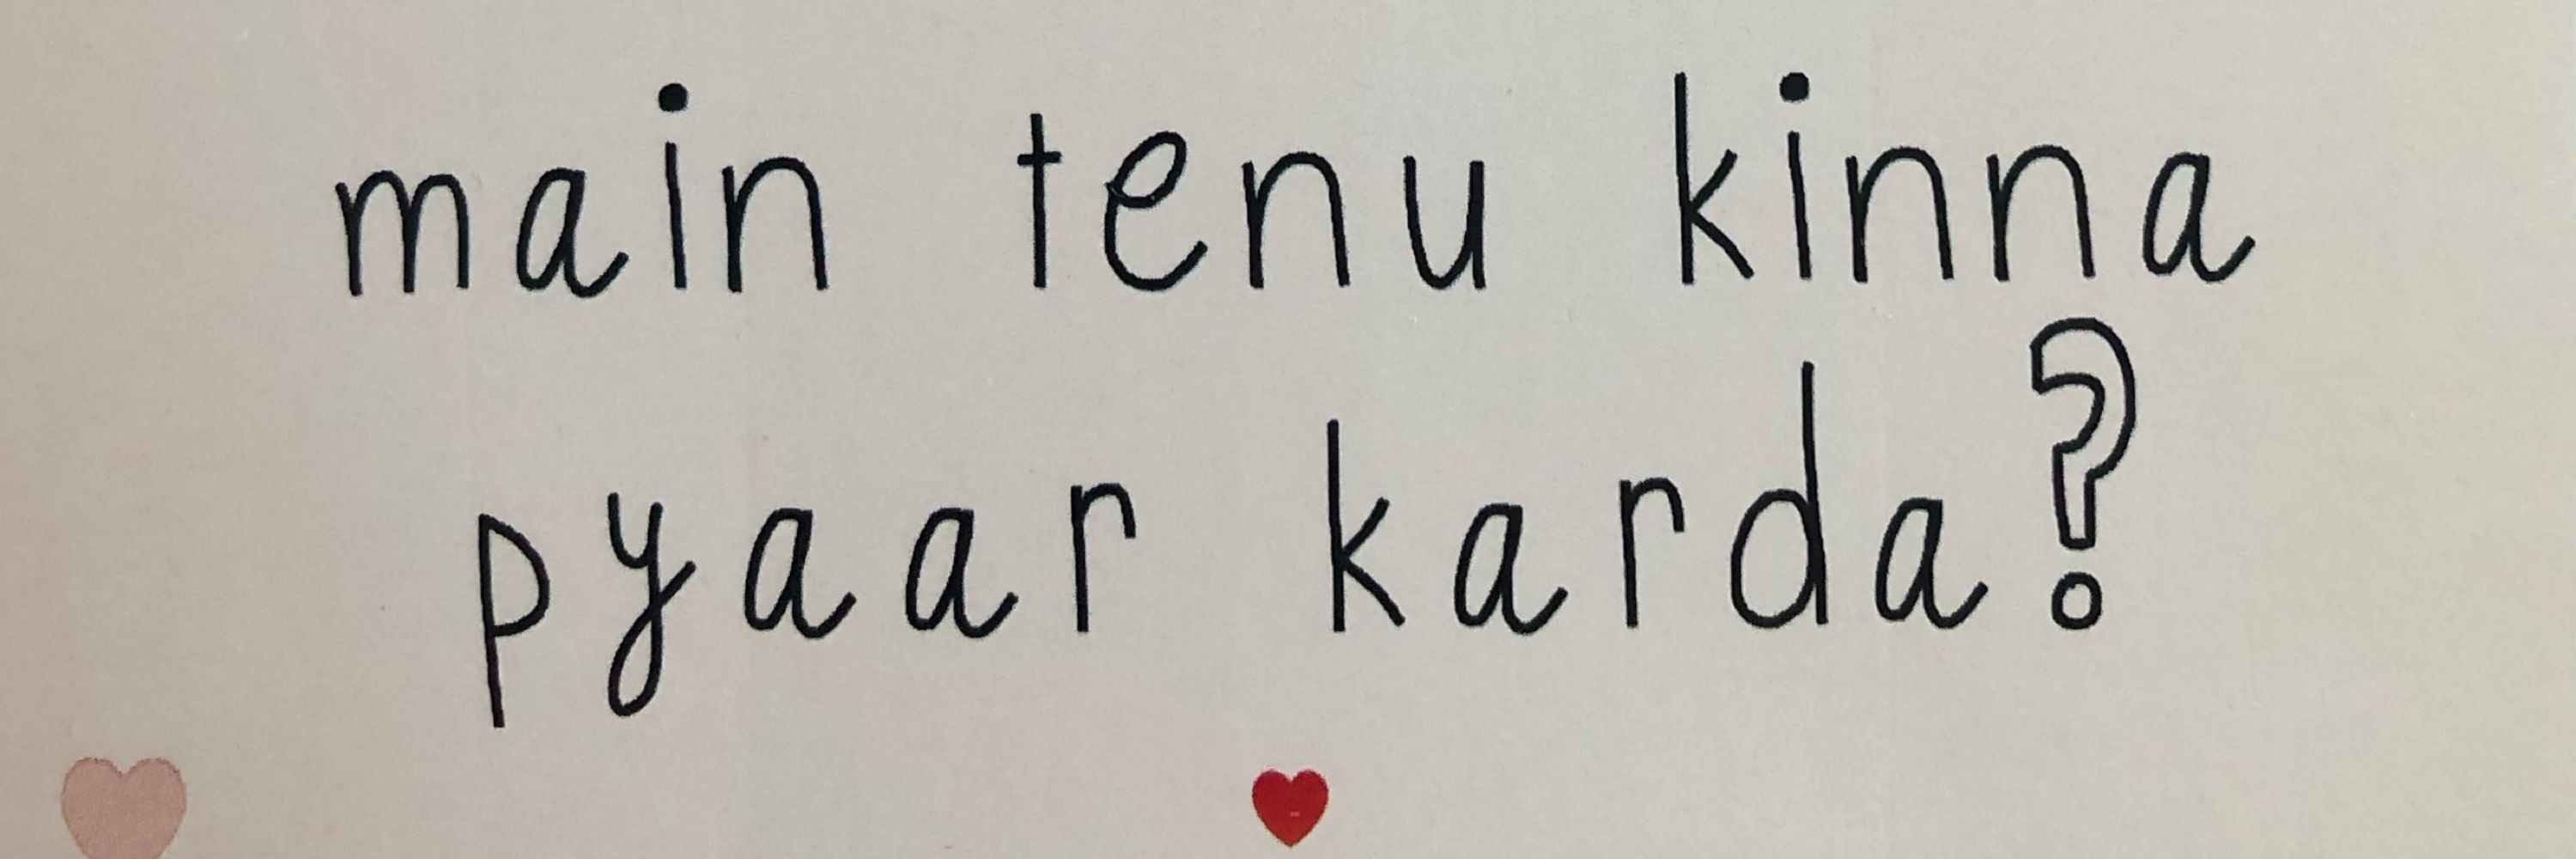 main tenu kinna
pyaar karda?